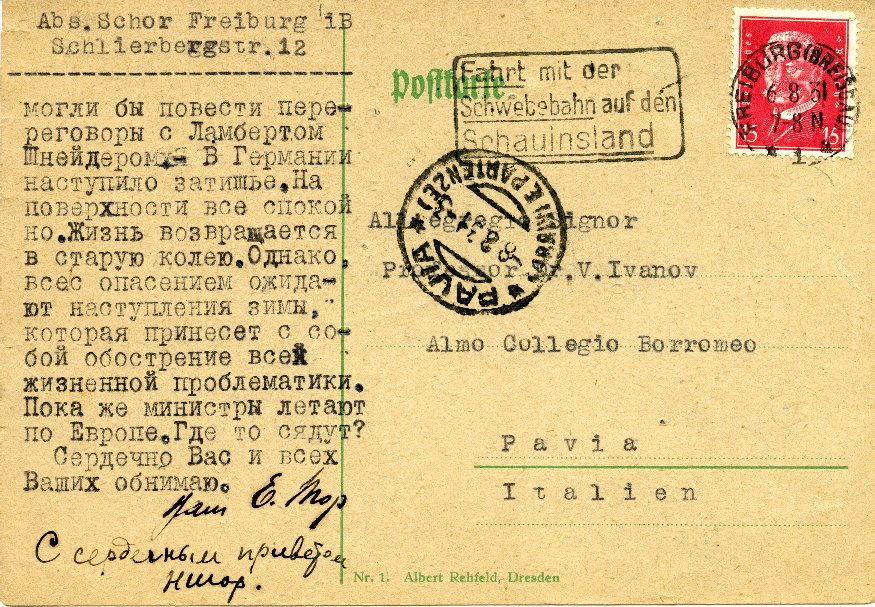 Abs.Schor Freiburg iB
Schlierbergstr.12
могли бы повести пере-
реговоры с Ламбертом
Шнейдером. В Германии
наступило затишье.На
поверхности все спокой
но.Жизнь возвращается
в старую колею.Однако,
всес опасением ожида-
ют наступления зимы,
которая принесет с со-
бой обострение всей
жизненной проблематики.
Пока же министры летают
по Европе.Где то сядут?
Сердечно Вас и всех
Ваших обнимаю.
Ваш Е. Шор
С сердечным приветом
НШор.
Postkarte
Fahrt mit der
Schwebebahn auf den
Schauinsland
FREIBURG (BREISGAU)
6.8.31
7-8 N
* 1 *
15 15
PAVIA
(ARRIVI E PARTENZE)
Signor
Professor Dr.V.Ivanov
Almo Collegio Borromeo
Pavia
Italien
Nr. 1. Albert Rehfeld, Dresden